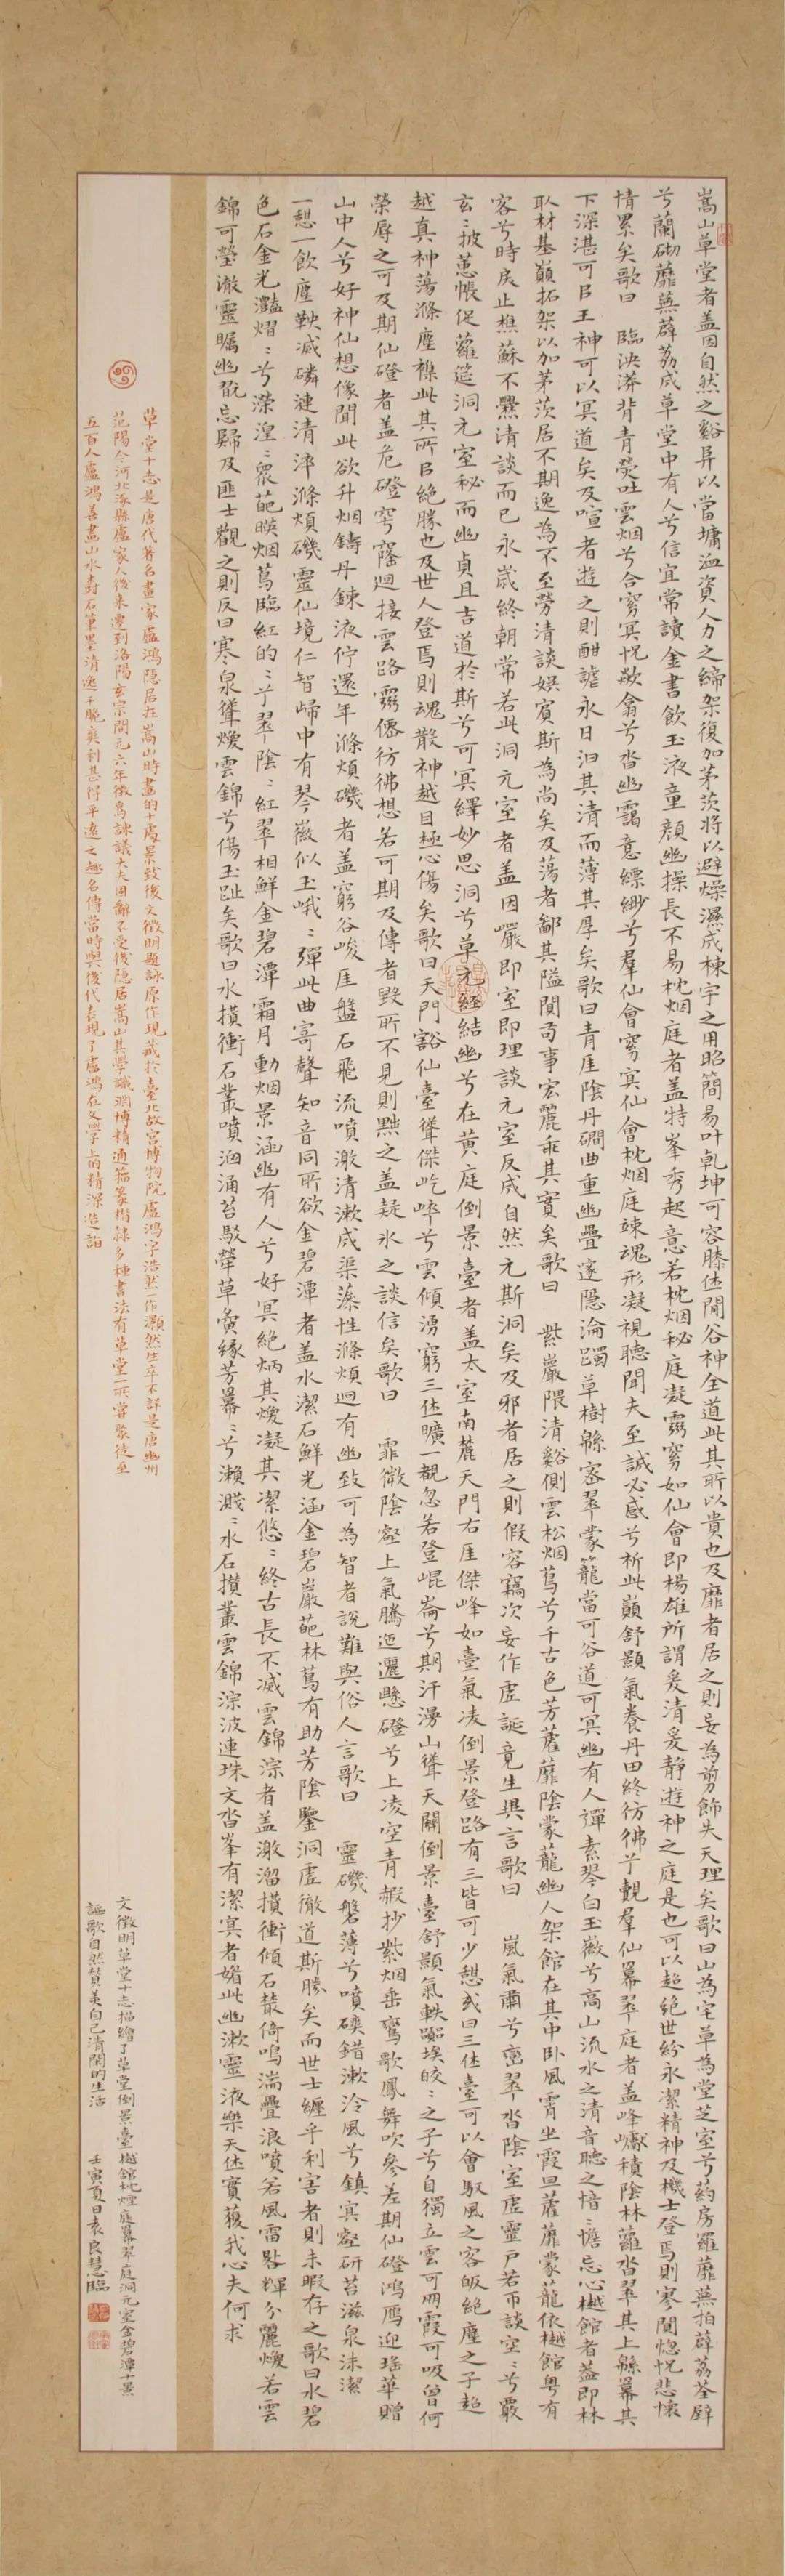 嵩山草堂者盖因自然之谿阜以當墉洫資人力之締架復加茅茨將以避燥濕成棟宇之用昭簡易叶乾坤可容膝休閒谷神全道此其所以貴也及靡者居之則妄為剪飾失天理矣歌曰山為宅草為堂芝室兮葯房羅蘼蕪拍薜荔荃壁
兮蘭砌蘼蕪薜荔成草堂中有人兮信宜常讀金書飲玉液童顏幽操長不易枕烟庭者盖特峯秀起意若枕烟秘庭凝靄窅如仙會即楊雄所謂爰清爰静遊神之庭是也可以超絶世紛永潔精神及機士登焉則寥閴惚怳悲懷
情累矣歌曰 臨泱漭背青熒吐雲烟兮合窅冥怳歘翕兮沓幽靄意縹緲兮羣仙會窅冥仙會枕烟庭竦魂形凝視聽聞夫至誠必感兮祈此巔舒顥氣養丹田終彷彿兮觀羣仙羃翠庭者盖峰巘積陰林蘿沓翠其上緜羃其
下深湛可㠯王神可以冥道矣及喧者遊之則酣謔永日汩其清而薄其厚矣歌曰青厓陰丹磵曲重幽疊邃隐淪躅草樹緜密翠蒙籠當可谷道可冥幽有人彈素琴白玉徽兮高山流水之清音聽之愔愔憺忘心樾館者盖即林
取材基巔拓架以加茅茨居不期逸為不至勞清談娱賓斯為尚矣及蕩者鄙其隘閴苟事宏麗乖其實矣歌曰 紫巖隈清谿側雲松烟蔦兮千古色芳蘿蘼陰蒙蘢幽人架館在其中卧風霄坐霞旦蘿蘼蒙蘢依樾館粤有
客兮時戾止樵蘇不爨清談而已永歲終朝常若此洞元室者盖因巖即室即理談元室反成自然元斯洞矣及邪者居之則假容竊次妄作虚誕竟生異言歌曰 嵐氣肅兮巒翠沓陰室虚靈戶若帀談空〻兮覈
玄〻披蕙帳促蘿筵洞元室秘而幽貞且吉道於斯兮可冥繹妙思洞兮草元經結幽兮在黄庭倒景臺者盖太室南麓天門右厓傑峰如臺氣凌倒景登路有三皆可少憩或曰三休臺可以會馭風之客皈絶塵之子超
越真神蕩滌塵襟此其所㠯絶勝也及世人登焉則魂散神越目極心傷矣歌曰天門豁仙臺聳傑屹崒兮雲傾湧窮三休曠一覩忽若登崐崙兮期汗漫山聳天關倒景臺舒顥氣軼嚻埃皎〻之子兮自獨立雲可朋霞可吸曾何
榮辱之可及期仙磴者盖危磴穹窿迴接雲路靈僊彷彿想若可期及傳者毁所不見則黜之盖疑氷之談信矣歌曰 霏微陰壑上氣騰迤邐懸磴兮上凌空青赮抄紫烟垂鸞歌鳳舞吹參差期仙磴鴻鴈迎瑶華贈
山中人兮好神仙想像聞此欲升烟鑄丹錬液佇還年滌煩磯者盖窮谷峻厓盤石飛流噴激清漱成渠藻性滌煩迥有幽致可為智者說難與俗人言歌曰 靈磯磐薄兮噴磢錯漱泠風兮鎮冥壑研苔滋泉沫潔
一憩一飲塵鞅滅磷漣清淬滌煩磯靈仙境仁智歸中有琴徽似玉峨〻彈此曲寄聲知音同所欲金碧潭者盖水潔石鮮光涵金碧巖葩林蔦有助芳陰鑒洞虚徹道斯勝矣而世士纏乎利害者則未暇存之歌曰水碧
色石金光灩熠〻兮瀅湟〻泉葩暎烟蔦臨紅的〻兮翠陰〻紅翠相鮮金碧潭霜月動烟景涵幽有人兮好冥絶炳其煥凝其潔悠〻終古長不滅雲錦淙者盖激溜攢衝傾石叢倚鳴湍疊浪噴若風雷晷輝分麗煥若雲
錦可瑩澈靈矚幽翫忘歸及匪士觀之則反曰寒泉聳煥雲錦兮傷玉趾矣歌曰水攢衝石叢噴洶涌苔駁犖草夤緣芳羃〻兮瀨濺〻水石攢叢雲錦淙波連珠文沓峯有潔冥者媚此幽漱靈液樂天休實獲我心夫何求
草堂十志是唐代著名畫家盧鴻隐居在嵩山時畫的十處景致後文徵明題詠原作現藏於臺北故宫博物院盧鴻字浩然一作灝然生卒不詳是唐幽州
范陽今河北涿縣盧家人後來遷到洛陽玄宗開元六年徵為諫議大夫固辭不受後隐居嵩山其學識渊博精通籀篆楷隸多種書法有草堂一所嘗聚徒至
五百人盧鴻善畫山水封石筆墨清逸干脆爽利甚得平遠之趣名傳當時與後代表現了盧鴻在文學上的精深造詣
文徵明草堂十志描繪了草堂倒景臺樾館枕煙庭羃翠庭洞元室金碧潭十景
謳歌自然贊美自己清閑的生活 壬寅夏日袁良慧臨